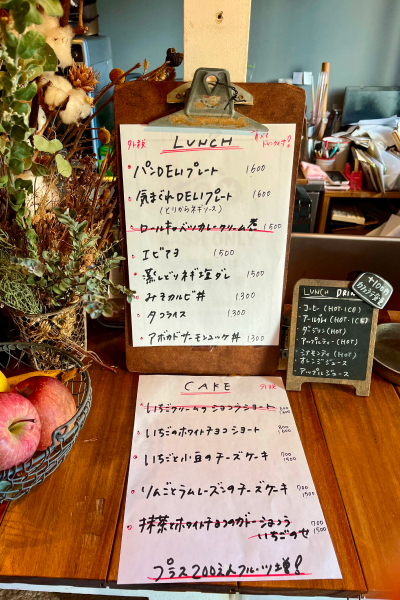 外税 LUNCH
パンDELIプレート 1600
気まぐれDELIプレート 1600
(とりからネギソース)
ロールキャベツカレークリーム煮 1500
エビマヨ 1500
蒸しどりネギ塩ダレ 1500
みそカルビ丼 1300
タコライス 1300
アボカドサーモンユッケ丼 1300
LUNCH DRINK
コーヒー(HOT・ICE)
アールグレイ(HOT・ICE)
ダージリン(HOT)
アップルティー(HOT)
シナモンティ(HOT)
オレンジジュース
アップルジュース
CAFE 外税
いちごクリームのショコラショート
いちごのホワイトチョコショート
いちごと小豆のチーズケーキ 700
りんごとラムレーズンのチーズケーキ 700
抹茶とホワイトチョコのガトーショコラ 700
いちごのせ
プラス200えんフルーツ増!